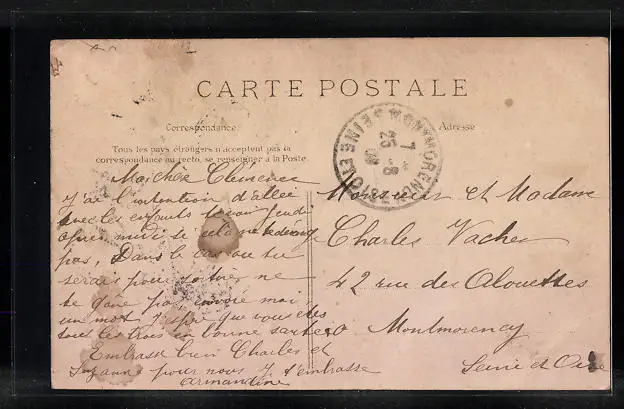 CARTE POSTALE
Correspondance
Adresse
Tous les pays étrangers n'acceptent pas la
correspondance au recto, se renseigner à la Poste.
MONTMORENCY
SEINE ET OISE
25 -8
Ma chère Clemence
J'ai l'intention d'allée
avec les enfants te voir jeudi
apres midi si cela ne te derange
pas, Dans le cas ou tu
serais pour sortir, ne
te gêne pas envoie moi
un mot J'espère que vous êtes
tous les trois en bonne santée
Embrasse bien Charles et
Suzanne pour nous Je t'embrasse
armandine
Monsieur et Madame
Charles Vacher
42 rue des Alouettes
Montmorency
Seine et Oise